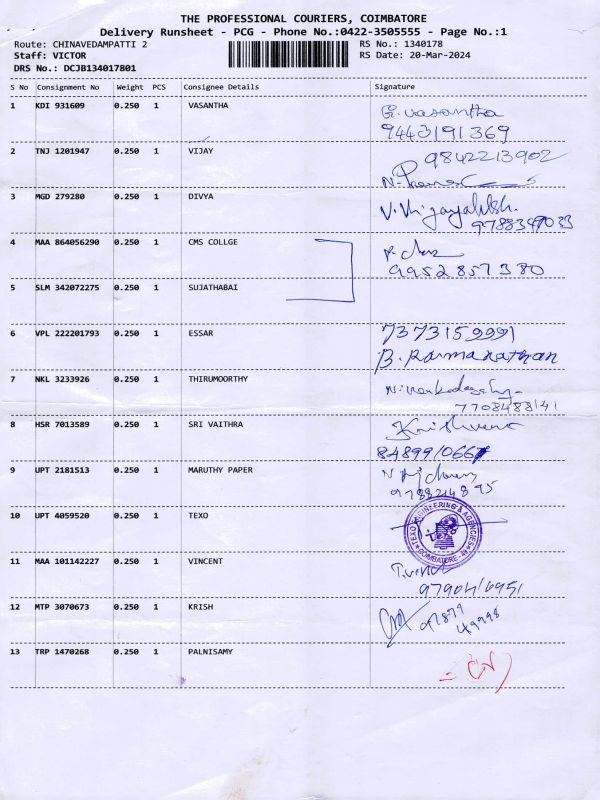 THE PROFESSIONAL COURIERS, COIMBATORE
Delivery Runsheet - PCG - Phone No.:0422-3505555 - Page No.:1
Route: CHINAVEDAMPATTI 2 RS No.: 1340178
Staff: VICTOR RS Date: 20-Mar-2024
DRS No.: DCJB134017801
S No Consignment No Weight PCS Consignee Details Signature
1 KDI 931609 0.250 1 VASANTHA G. vasantha
9443191369
2 TNJ 1201947 0.250 1 VIJAY 9842213902
3 MGD 279280 0.250 1 DIVYA V. Vijayalaksh.
4 MAA 864056290 0.250 1 CMS COLLGE
9952857380
5 SLM 342072275 0.250 1 SUJATHABAI
6 VPL 222201793 0.250 1 ESSAR 7373159991
B. Ramanathan
7 NKL 3233926 0.250 1 THIRUMOORTHY
7708488141
8 HSR 7013589 0.250 1 SRI VAITHRA
9 UPT 2181513 0.250 1 MARUTHY PAPER
9788214895
10 UPT 4059520 0.250 1 TEXO
TEXO ENGINEERING & AGENCIES
COIMBATORE - 49
11 MAA 101142227 0.250 1 VINCENT
12 MTP 3070673 0.250 1 KRISH
97877
49998
13 TRP 1470268 0.250 1 PALNISAMY